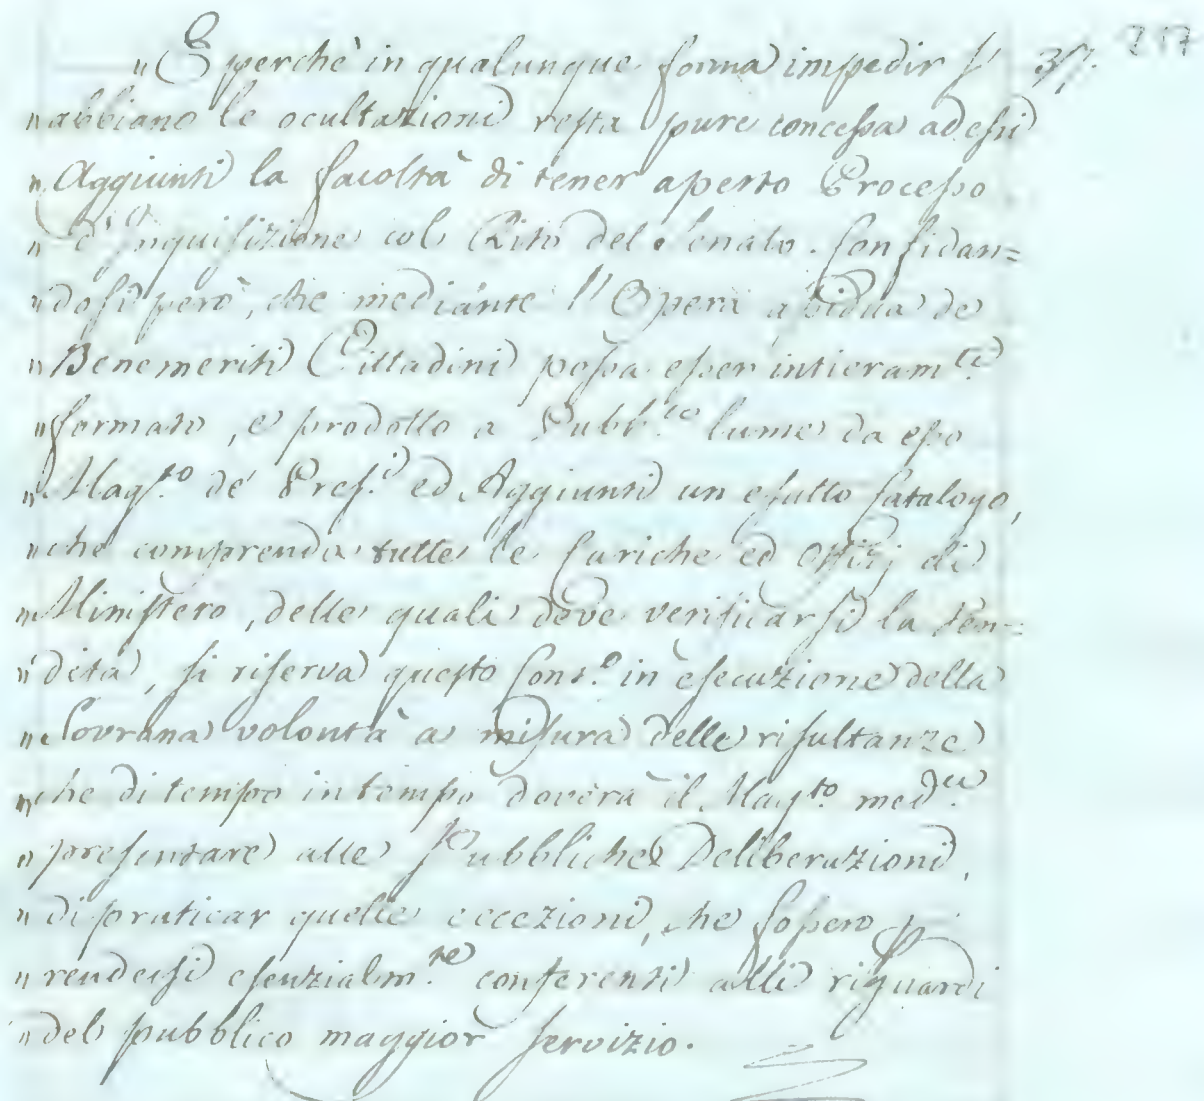 „E perchè in qualunque forma impedir s' 37. 217
„abbiano le ocultazioni resta pure concessa ad essi
„Aggiunti la facoltà di tener aperto Processo
„d'Inquisizione col Rito del Senato. Confidan=
„dosi però, che mediante l'Opera assidua de
„Benemeriti Cittadini possa esser intieram.te
„formato, e prodotto a Pubb.co lume da esso
„Mag.to de Pres.i ed Aggiunti un esatto Catalogo,
„che comprenda tutte le Cariche ed Offizj di
„Ministero, delle quali deve verificarsi la Ven=
„dita, si riserva questo Cons.o in esecuzione della
„Sovrana volontà a misura delle risultanze
„che di tempo in tempo doverà il Mag.to med.mo
„presentare alle Pubbliche Deliberazioni,
„di praticar quelle eccezioni, che fossero p
„rendersi esenzialm.te conferenti alli riguardi
„del pubblico maggior servizio.